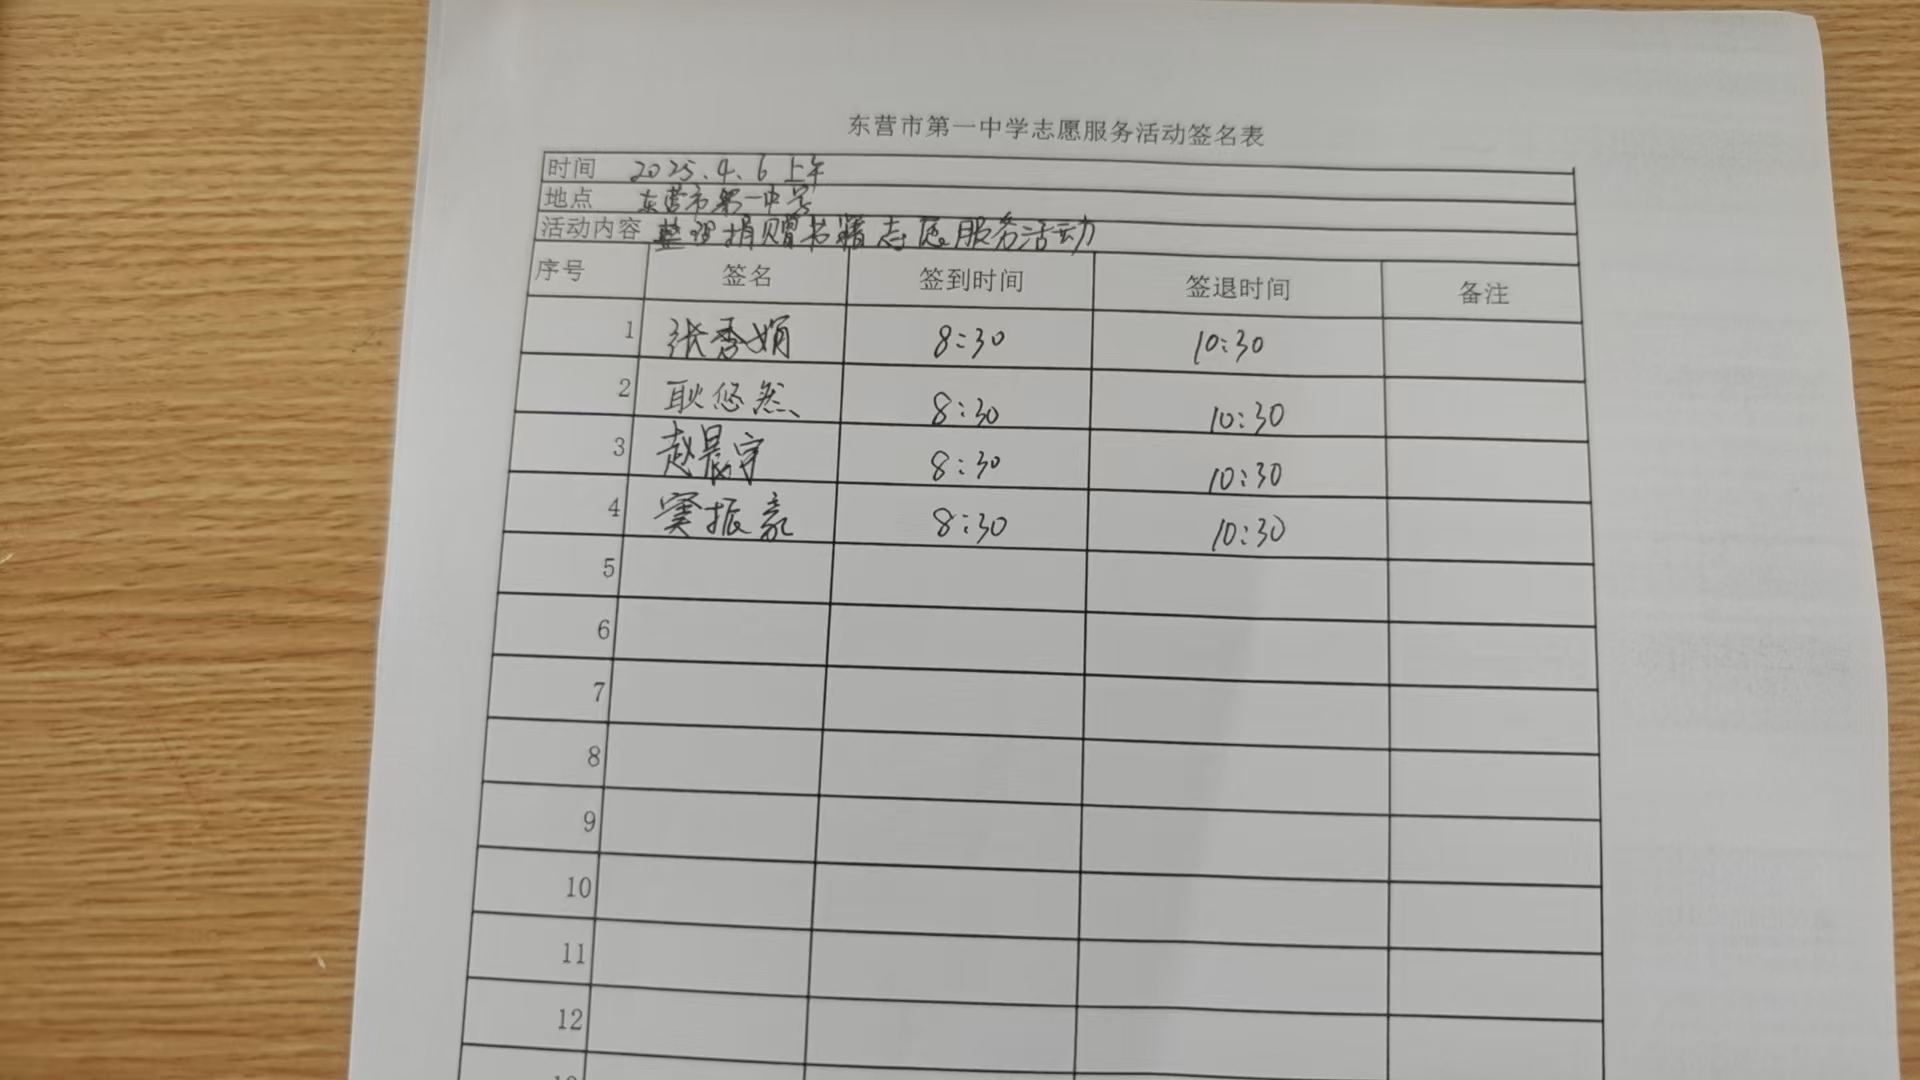 东营市第一中学志愿服务活动签名表
时间 2025.4.6 上午
地点 东营市第一中学
活动内容 整理捐赠书籍志愿服务活动
序号 签名 签到时间 签退时间 备注
1 张秀娟 8:30 10:30
2 耿悠然 8:30 10:30
3 赵晨宇 8:30 10:30
4 窦振豪 8:30 10:30
5
6
7
8
9
10
11
12